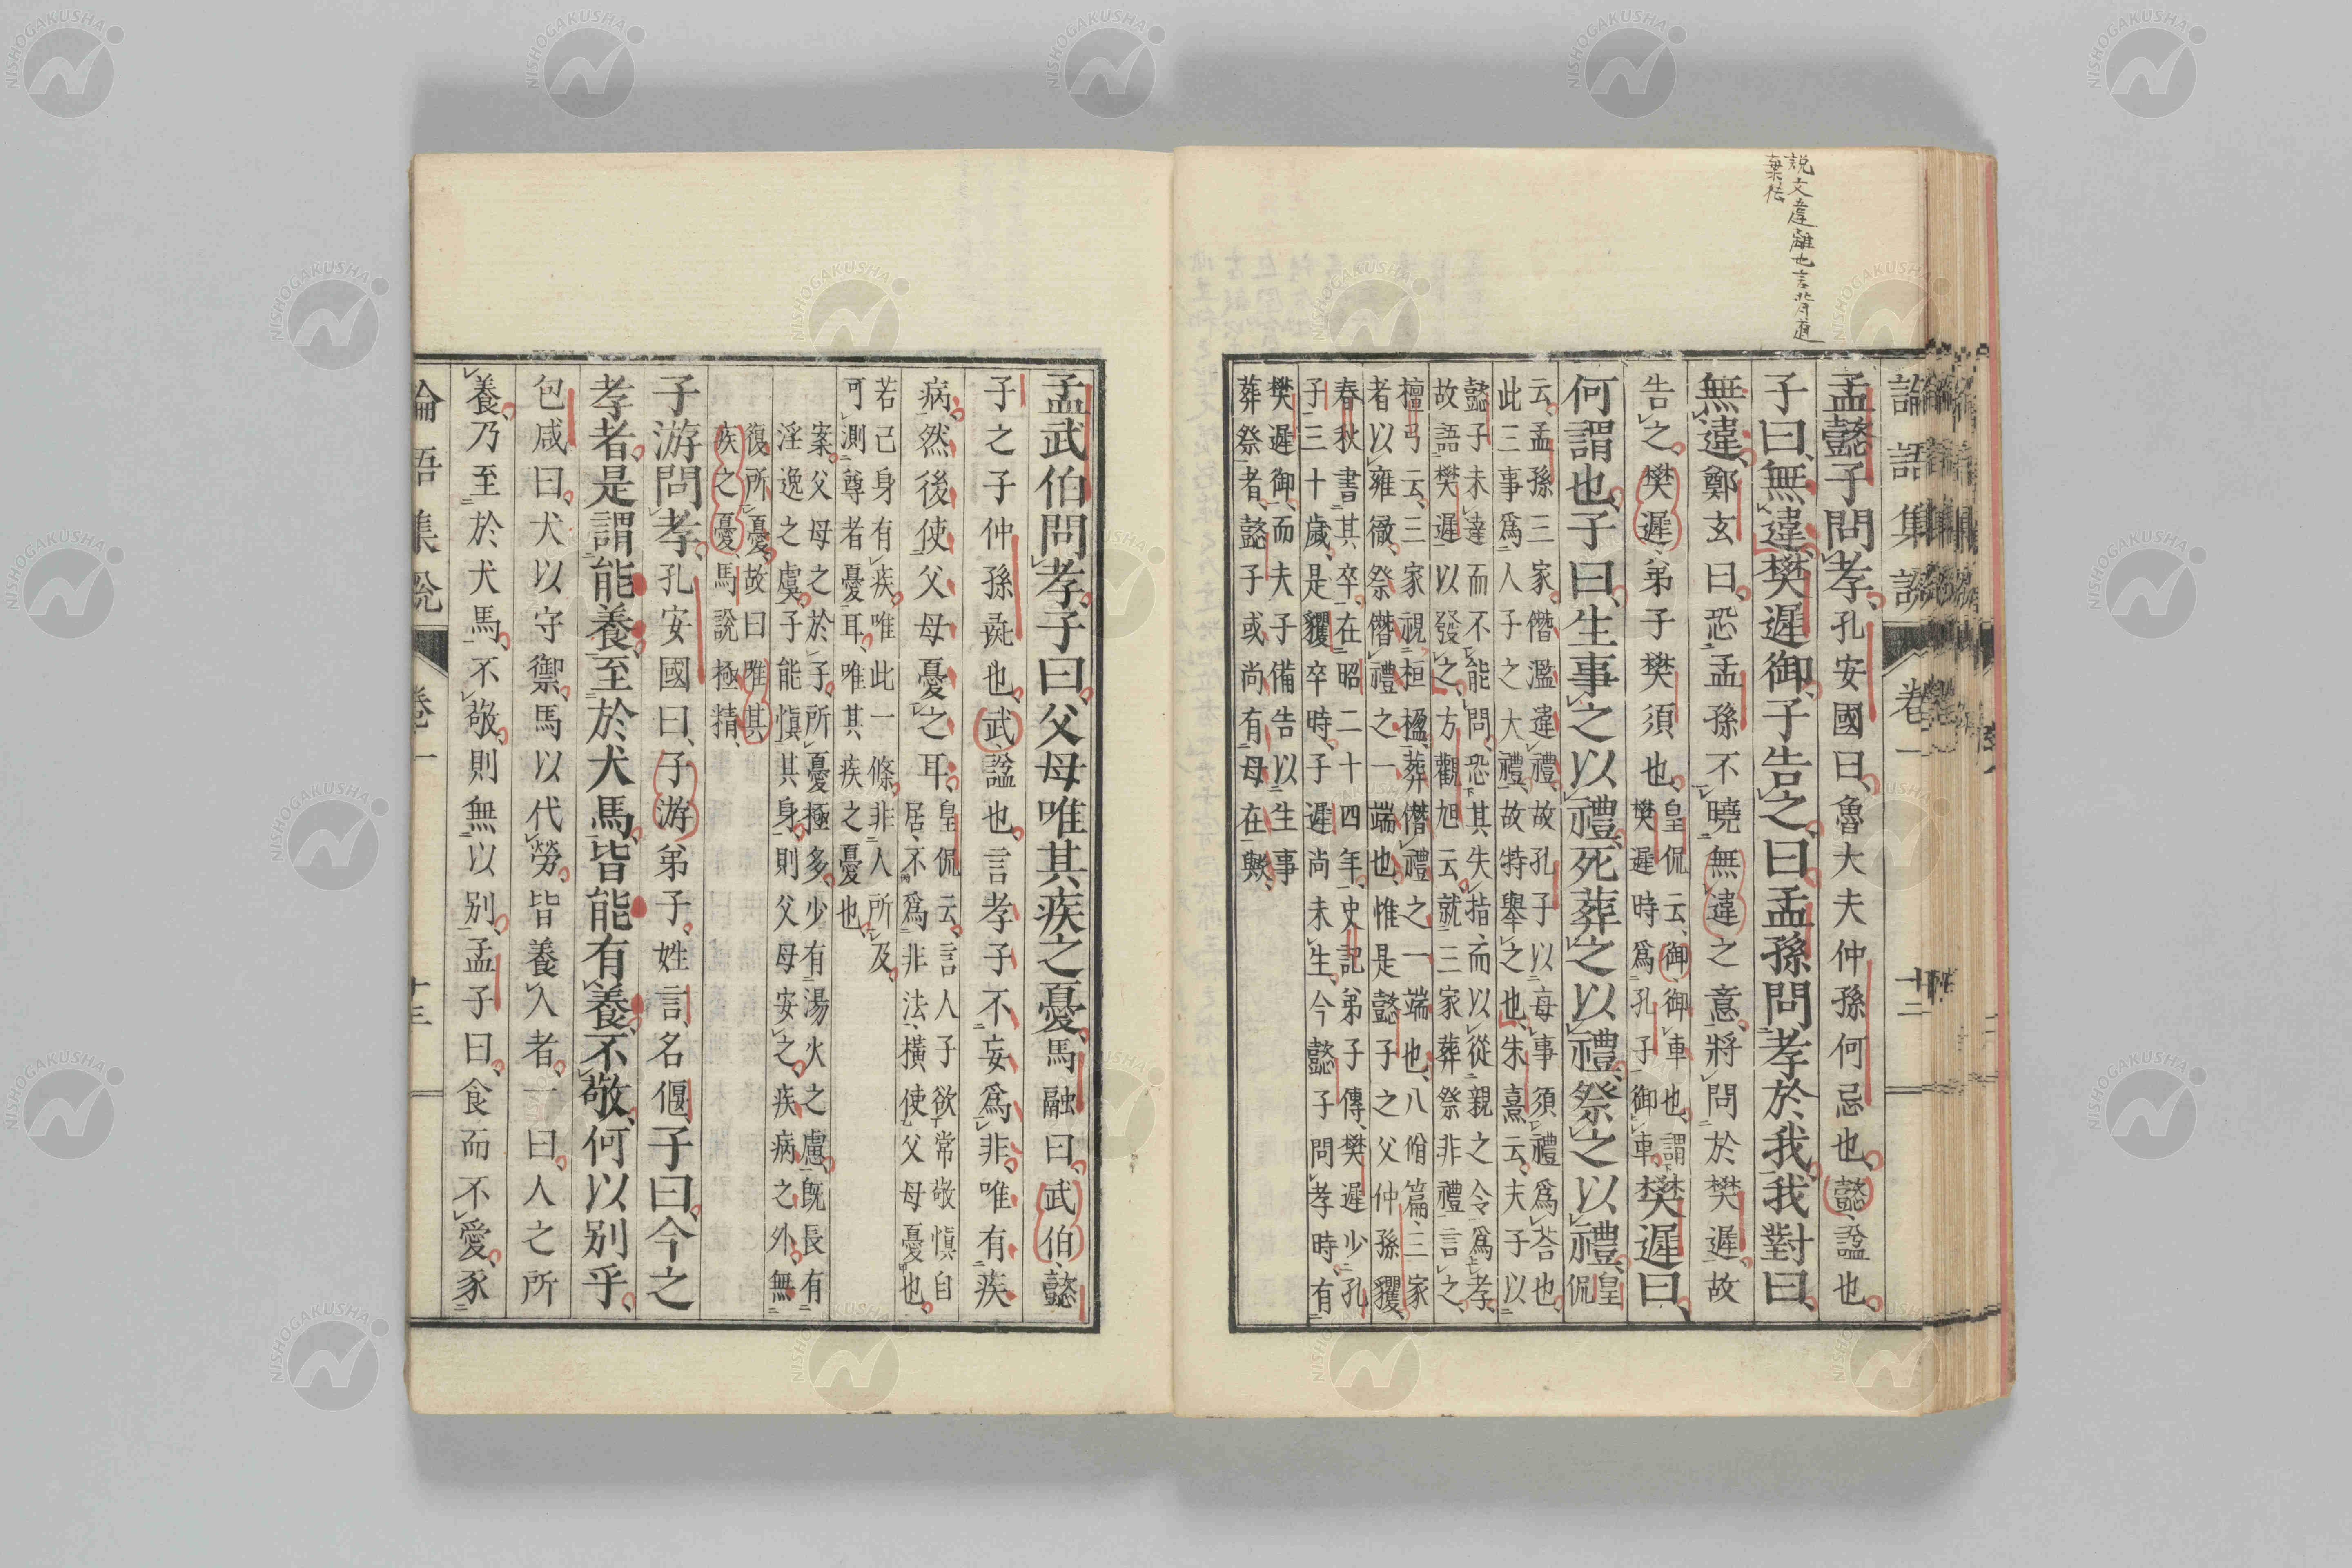 説文違離也言背道
論語集説 卷一 十二
孟懿子問孝、孔安國曰、魯大夫仲孫何忌也、懿、諡也、
子曰、無違、樊遲御、子告之曰、孟孫問孝於我、我對曰、
無違、鄭玄曰、恐孟孫不曉無違之意、將問於樊遲、故
告之、樊遲、弟子樊須也、皇侃云、御、御車也、謂樊遲時爲孔子御車、樊遲曰、
何謂也、子曰、生事之以禮、死葬之以禮、祭之以禮、皇侃
云、孟孫三家、僭濫違禮、故孔子以每事須禮爲荅也、
此三事爲人子之大禮、故特舉之也、朱熹云、夫子以
懿子未達而不能問、恐其失指、而以從親之令爲孝、
故語樊遲以發之、方觀旭云、就三家葬祭非禮言之、
檀弓云、三家視桓楹、葬僭禮之一端也、八佾篇、三家
者以雍徹、祭僭禮之一端也、惟是懿子之父仲孫貜、
春秋書其卒、在昭二十四年、史記弟子傳、樊遲少孔
子三十歲、是貜卒時、子遲尚未生、今懿子問孝時、有
樊遲御、而夫子備告以生事
葬祭者、懿子或尚有母在歟、
孟武伯問孝、子曰、父母唯其疾之憂、馬融曰、武伯、懿
子之子仲孫彘也、武、諡也、言孝子不妄爲非、唯有疾
病、然後使父母憂之耳、皇侃云、言人子欲常敬愼自居、不爲非法、橫使父母憂也、
若己身有疾、唯此一條、非人所及、
可測尊者憂耳、唯其疾之憂也、
案父母之於子、所憂極多、少有湯火之慮、既長有
淫逸之虞、子能愼其身、則父母安之、疾病之外、無
復所憂、故曰唯其
疾之憂、馬説極精、
子游問孝、孔安國曰、子游、弟子、姓言、名偃、子曰、今之
孝者、是謂能養、至於犬馬、皆能有養、不敬、何以別乎、
包咸曰、犬以守禦、馬以代勞、皆養人者、一曰、人之所
養、乃至於犬馬、不敬、則無以別、孟子曰、食而不愛、豕
論語集説 卷一 十三
NISHOGAKUSHA